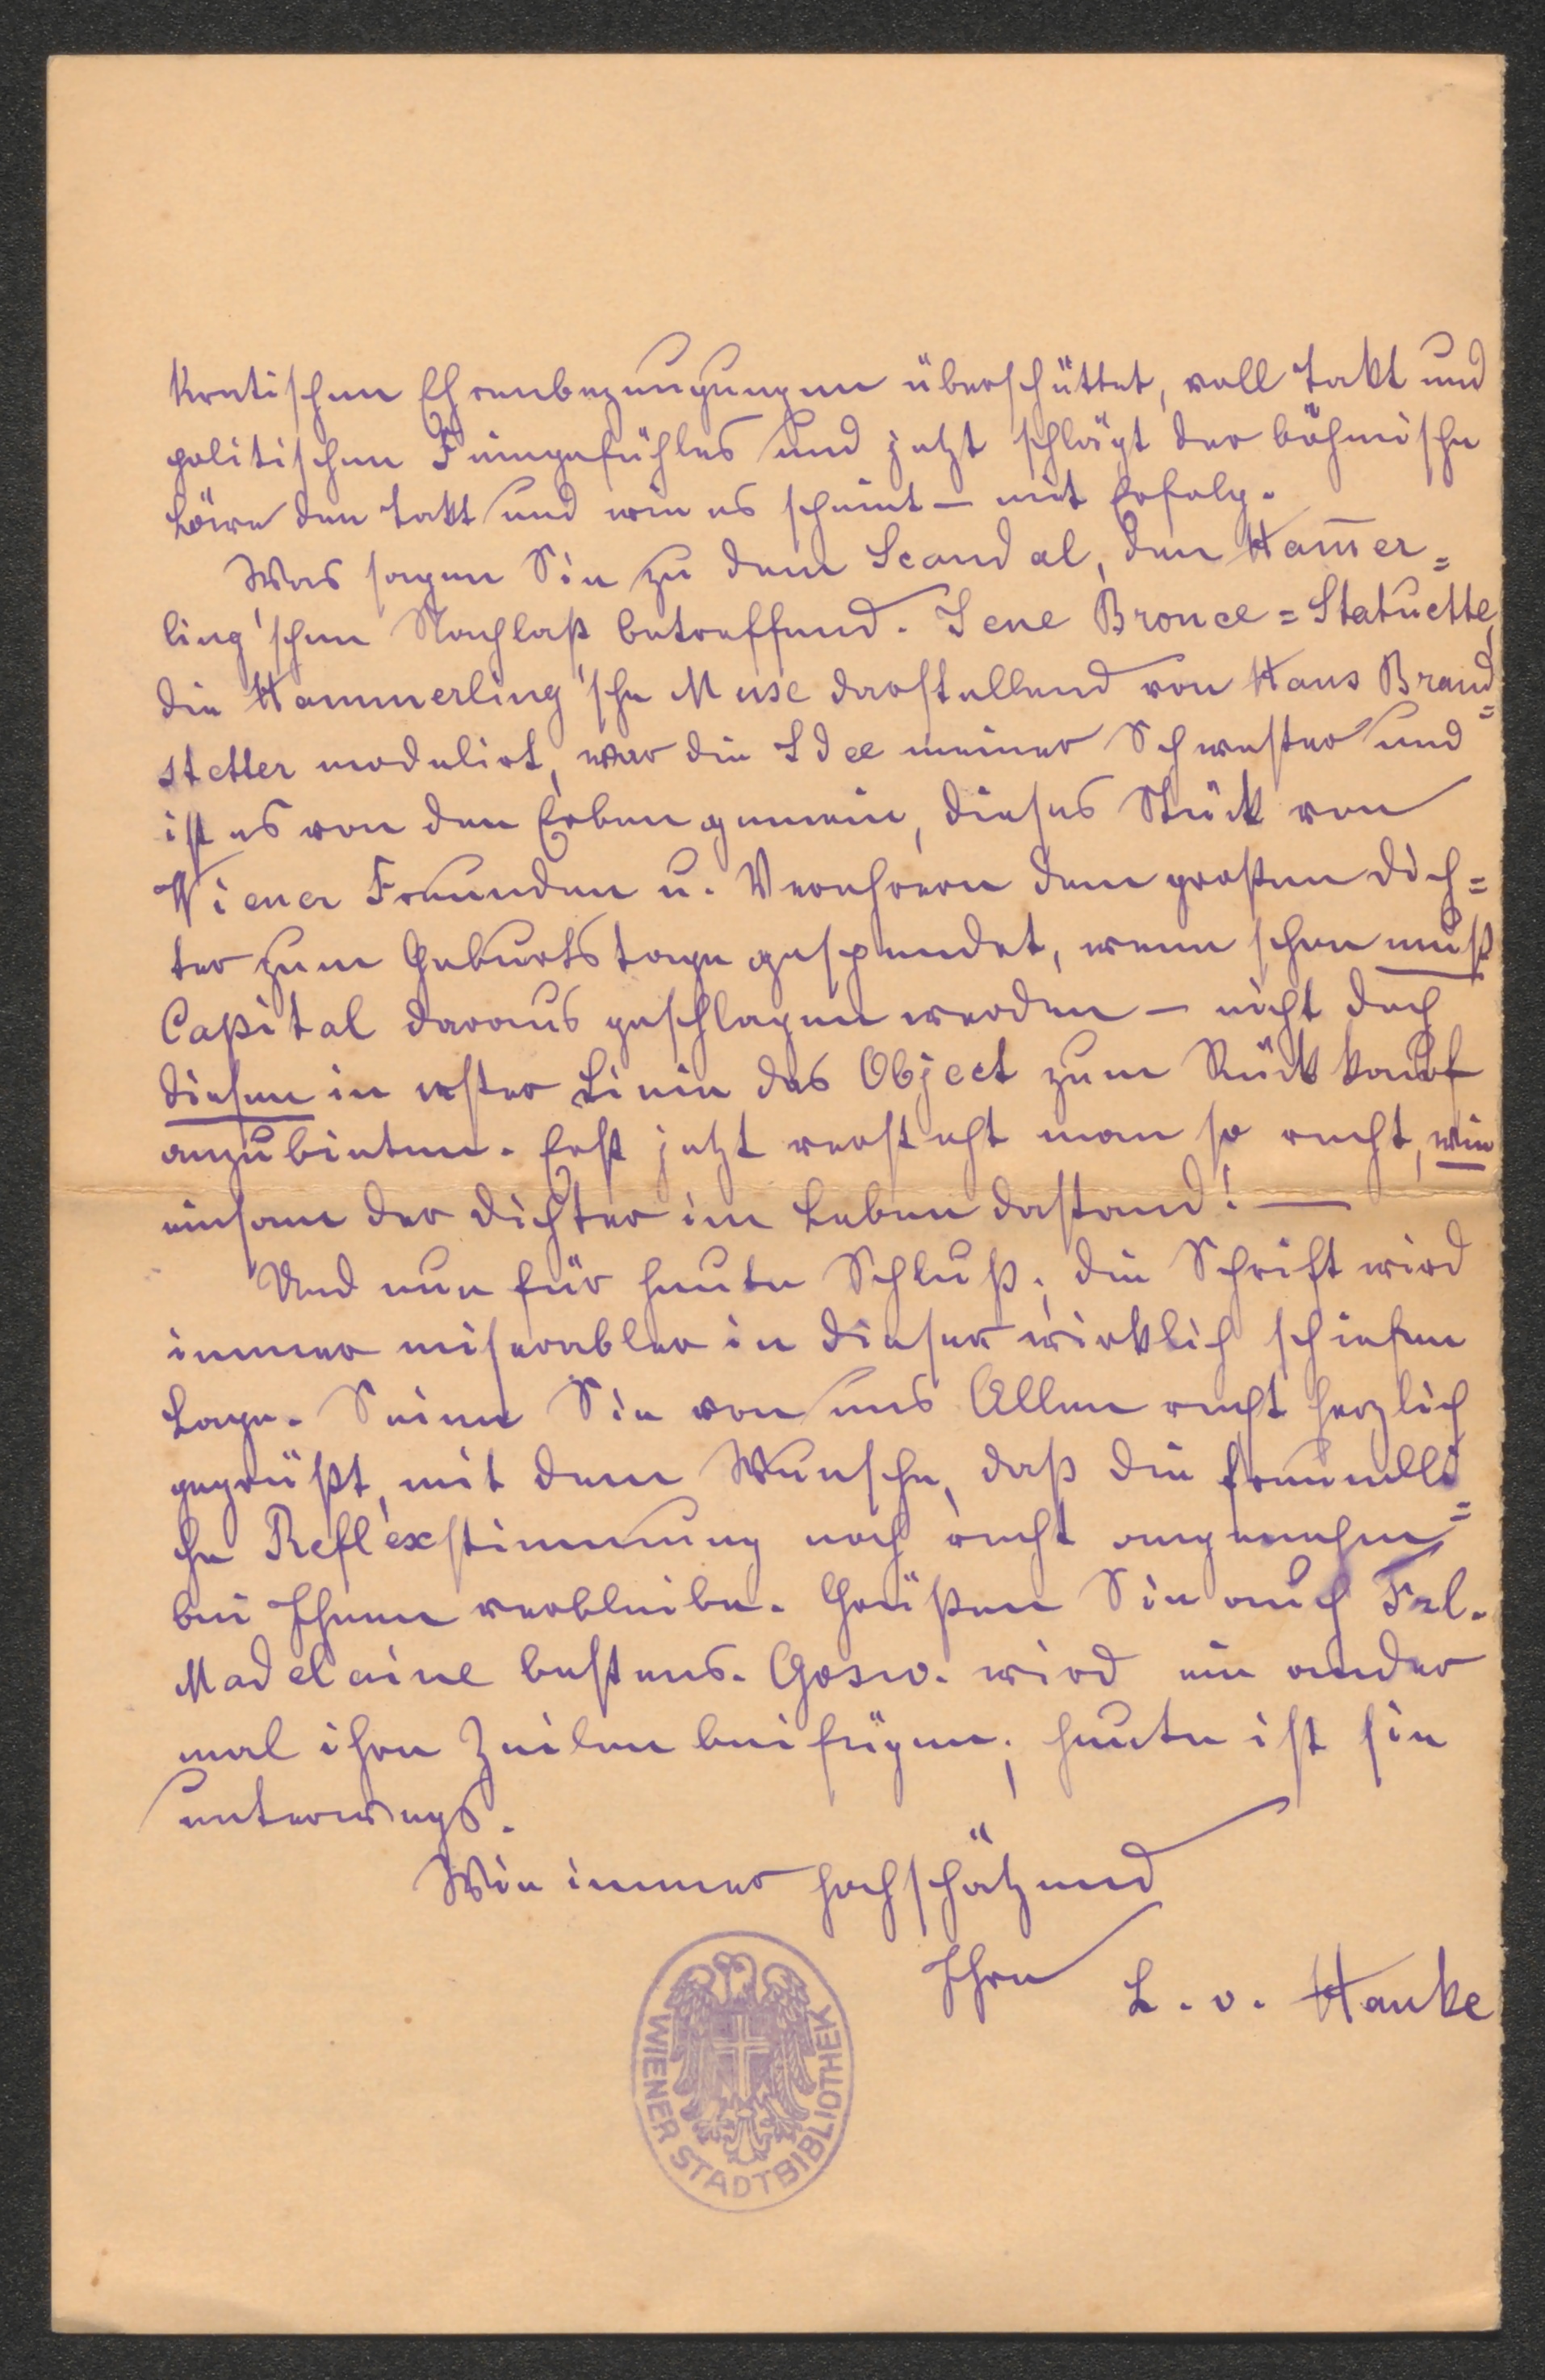 kratischen Ehrenbezeugungen überschüttet, voll Takt und
politischen Feingefühles und jetzt schlägt der böhmische
Löwe den Takt und wie es scheint – mit Erfolg.
Was sagen Sie zu dem Scandal, den Ham̅er=
ling'schen Nachlaß betreffend. Jene Bronce=Statuette,
die Hammerling'sche Muse darstellend von Hans Brand=
stetter modelirt, war die Idee meiner Schwester und
ist es von den Erben gemein, dieses Stück von
Wiener Freunden u. Verehrern dem großen Dich=
ter zum Geburtstage gespendet, wenn schon muß
Capital daraus geschlagen werden – nicht doch
diesen in erster Linie das Object zum Rückkauf
anzubieten. Erst jetzt versteht man so recht, wie
einsam der Dichter im Leben dastand! —
Und nun für heute Schluß; die Schrift wird
immer miserabler in dieser wirklich schiefen
Lage. Seien Sie von uns Allen recht herzlich
gegrüßt, mit dem Wunsche, daß die freundli=
che Reflexstimmung noch recht angenehm
bei Ihnen verbleibe. Grüßen Sie auch Frl.
Madelaine bestens. Gosw. wird ein ander
mal ihre Zeilen beifügen; heute ist sie
unterwegs.
Wie immer hochschätzend
Ihre L. v. Hanke
WIENER STADTBIBLIOTHEK